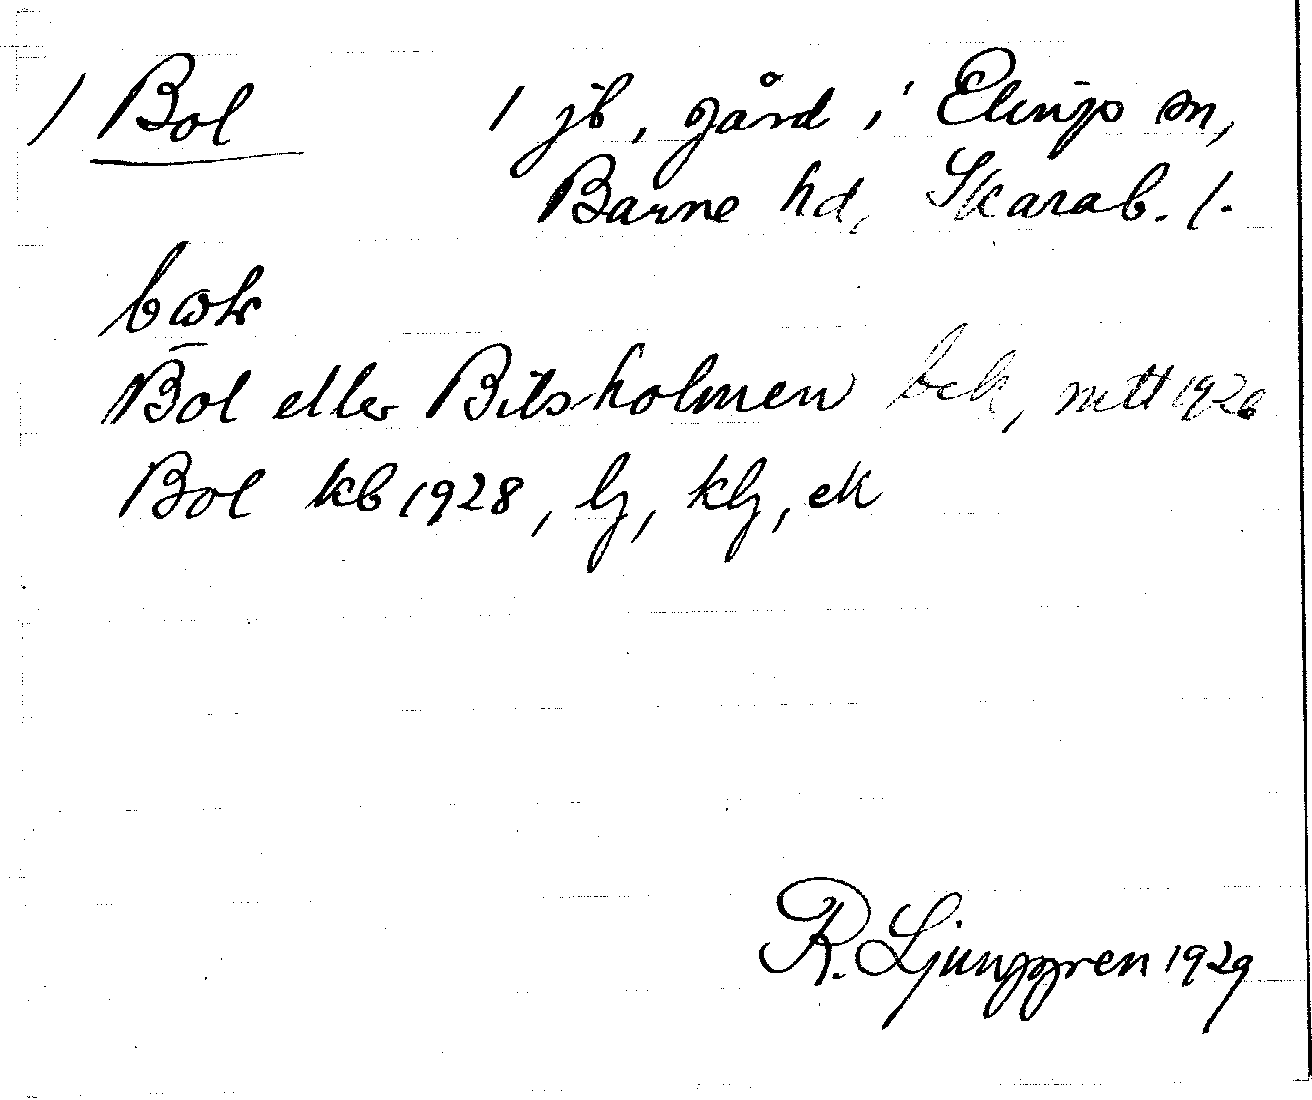 1 Bol 1 jb, gård i Elings sn,
Barne hd, Skarab. l.
Bol eller Bilsholmen bek, mtt 1926
Bol kb 1928, lj, klj, ek
R. Ljunggren 1929